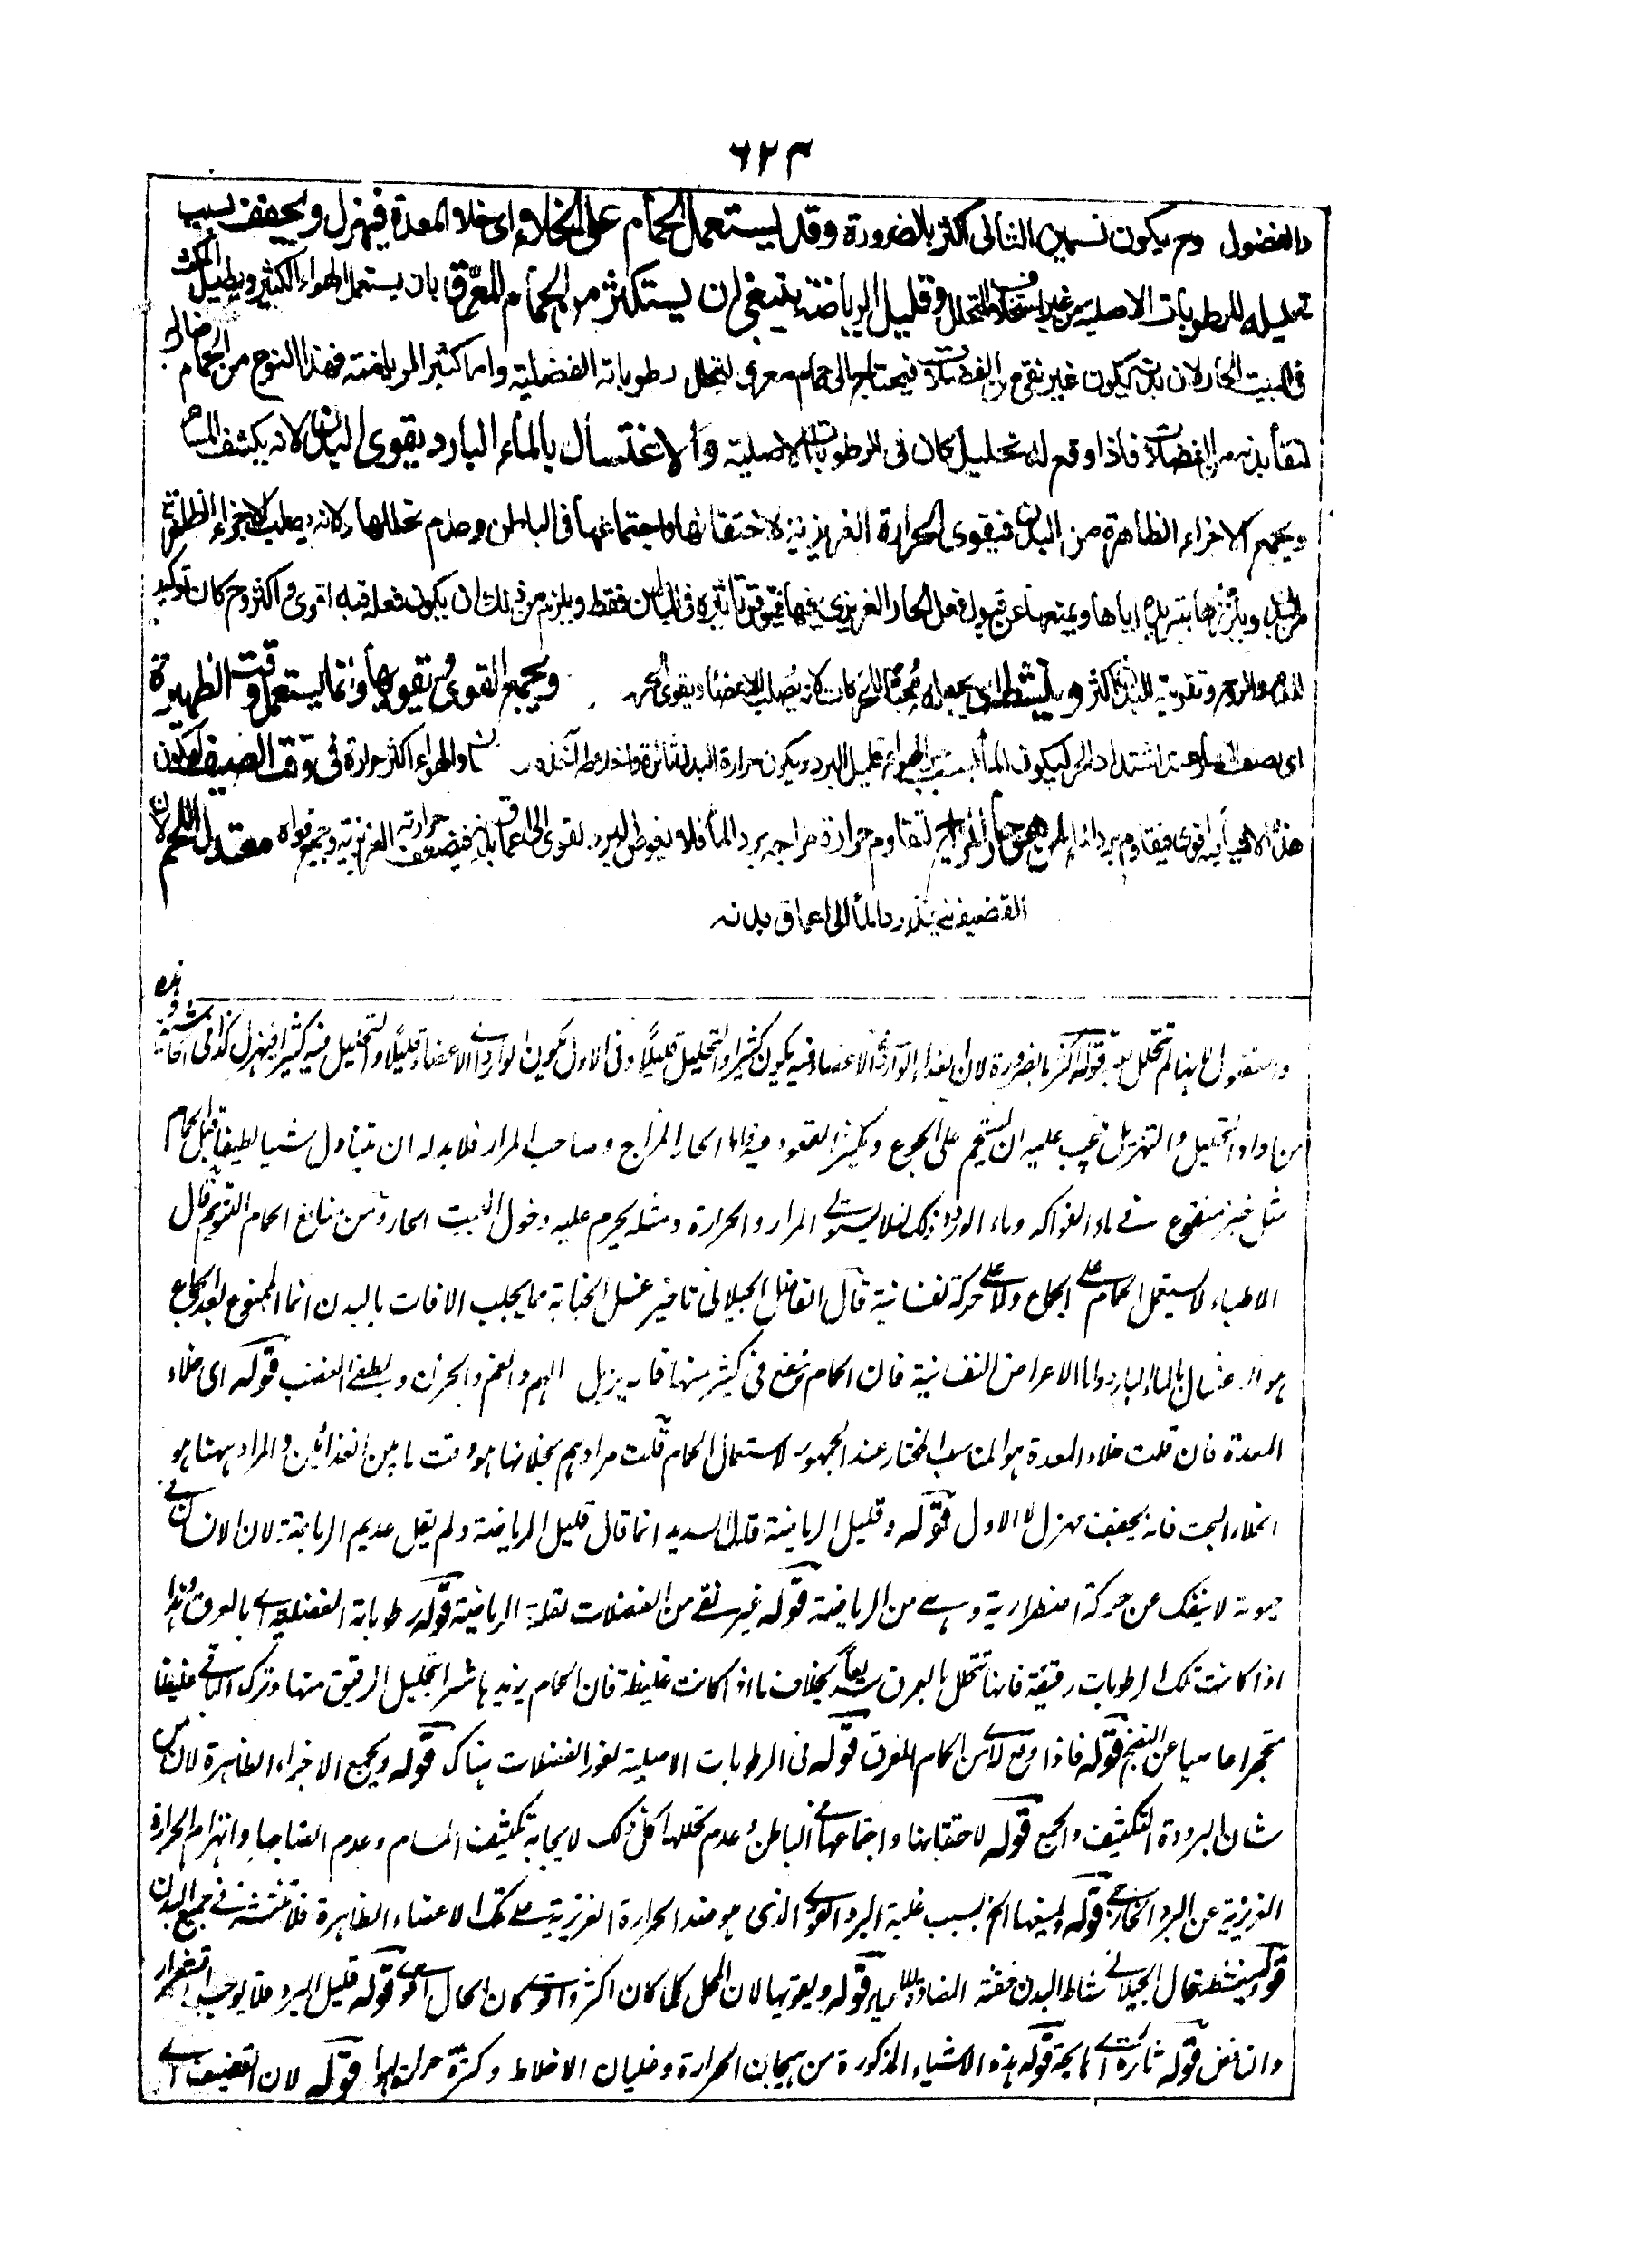 ٦٢٣
والفضول وح يكون تسمين الثانى اكثر بالضرورة وقد يستعمل الحمام على الخلاء اى خلاء المعدة فيهزل ويجفف بسبب
تحليله للرطوبات الاصلية من غير استخلاف المتحلل وقليل الرياضة ينبغى ان يستكثر من الحمام المعرق بان يستعمل الهواء الكثير ويطيل المكث
فى البيت الحار لان بدنه يكون غير نقى من الفضلات فيحتاج الى حمام معرق ليتحلل رطوباته الفضلية واما كثير الرياضة فهذا النوع من الحمام
لنقاء بدنه من الفضلات فاذا وقع له تحليل كان فى الرطوبات الاصلية والاغتسال بالماء البارد يقوى البدن لانه يكثف المسام
ويجمع الاجزاء الظاهرة من البدن فيقوى الحرارة الغريزية لاحتقانها واجتماعها فى الباطن وعدم تحللها ولانه يصلب الاجزاء الظاهرة
من البدن ويلززها بتبريده اياها ويمنعها عن قبول فعل الحار الغريزى فيها فيتوفر تأثيره فى الباطن فقط ويلزم من ذلك ان يكون فعله فيه اقوى واكثر وح كان توليد
الدم والروح وتقوية البدن اكثر وينشطه اى يجعله محبا للحركات لانه يصلب الاعضاء ويقوى الحرارة ويجمع القوى ويقويها وانما يستعمل وقت الظهيرة
اى نصف النهار عند اشتداد الحر ليكون الماء بسبب حر الهواء قليل البرد ويكون حرارة البدن ثائرة والهواء اكثر حرارة فى وقت الصيف لتكون
هذه الاشياء فيه اقوى فيقاوم برد الماء لمن هو حار المزاج لتقاوم حرارة مزاجه برد الماء فلا يغوص البرد لقوى الى اعماق بدنه فيضعف حرارته الغريزية وجميع قواه معتدل اللحم لان
القضيف ينفذ برد الماء الى اعماق بدنه
قوله اكثر بالضرورة لان الغذاء الوارد فى الاعضاء فيه يكون كثيرا والتحليل قليلا وفى الاول يكون الوارد الى الاعضاء قليلا والتحليل فيه كثيرا فيهزل كذا فى
من اراد التحليل والتهزيل يجب عليه ان يستحم على الجوع ويكثر القعود فيه واما الحار المزاج وصاحب المرار فلا بد له ان يتناول شيا لطيفا قبل الحمام
مثل خبز منقوع فى ماء الفواكه وماء الورد وذلك لئلا يستولى المرار والحرارة ومثله يحرم عليه دخول البيت الحار وقال
الاطباء لا يستعمل الحمام على الجماع ولا على حركة نفسانية قال الفاضل الجيلانى تاخير غسل الجنابة مما يجلب الافات بالبدن انما الممنوع بعد الجماع
هو الاغتسال بالماء البارد واما الاعراض النفسانية فان الحمام ينفع فى كثير منها فانه يزيل الهم والغم والحزن ويطفئ الغضب قوله اى خلاء
المعدة فان قلت خلاء المعدة هو المناسب المختار عند الجمهور لاستعمال الحمام قلت مرادهم بخلائها هو وقت ما بين الغذائين والمراد ههنا هو
الخلاء البحت فانه يجفف ويهزل لا الاول قوله وقليل الرياضة قال السديد انما قال قليل الرياضة ولم يقل عديم الرياضة لان الانسان فى
حيوته لا ينفك عن حركة اضطرارية وهى من الرياضة قوله غير نقى من الفضلات لقلة الرياضة قوله رطوباته الفضلية اى بالعرق هذا
اذا كانت تلك الرطوبات رقيقة فانها تتحلل بالعرق سريعا بخلاف ما اذا كانت غليظة فان الحمام يزيدها شرا بتحليل الرقيق منها وترك الباقى غليظا
متحجرا عاصيا عن النضج قوله فاذا وقع له اى من الحمام المعرق قوله فى الرطوبات الاصلية لعوز الفضلات هناك قوله ويجمع الاجزاء الظاهرة لان من
شان البرودة التكثيف والجمع قوله لاحتقانها واجتماعها فى الباطن وعدم تحللها كل ذلك لايجابه تكثيف المسام وعدم انفتاحها وانهزام الحرارة
الغريزية عن البرد الخارجى قوله ويمنعها الخ بسبب غلبة البرد القوى الذى هو ضد الحرارة الغريزية على تلك الاعضاء الظاهرة فلا تنتشر فى جميع البدن
قوله وينشطه قال الجيلانى نشاط البدن خفته قوله ويقويها لان المحل كلما كان اكثر واقوى كان الحال اقوى قوله قليل البرد فلا يوجب اقشعرار
والنافض قوله ثائرة اى هايجة قوله هذه الاشياء المذكورة من هيجان الحرارة وغليان الاخلاط وكثرة حرارة الهواء قوله لان القضيف اى